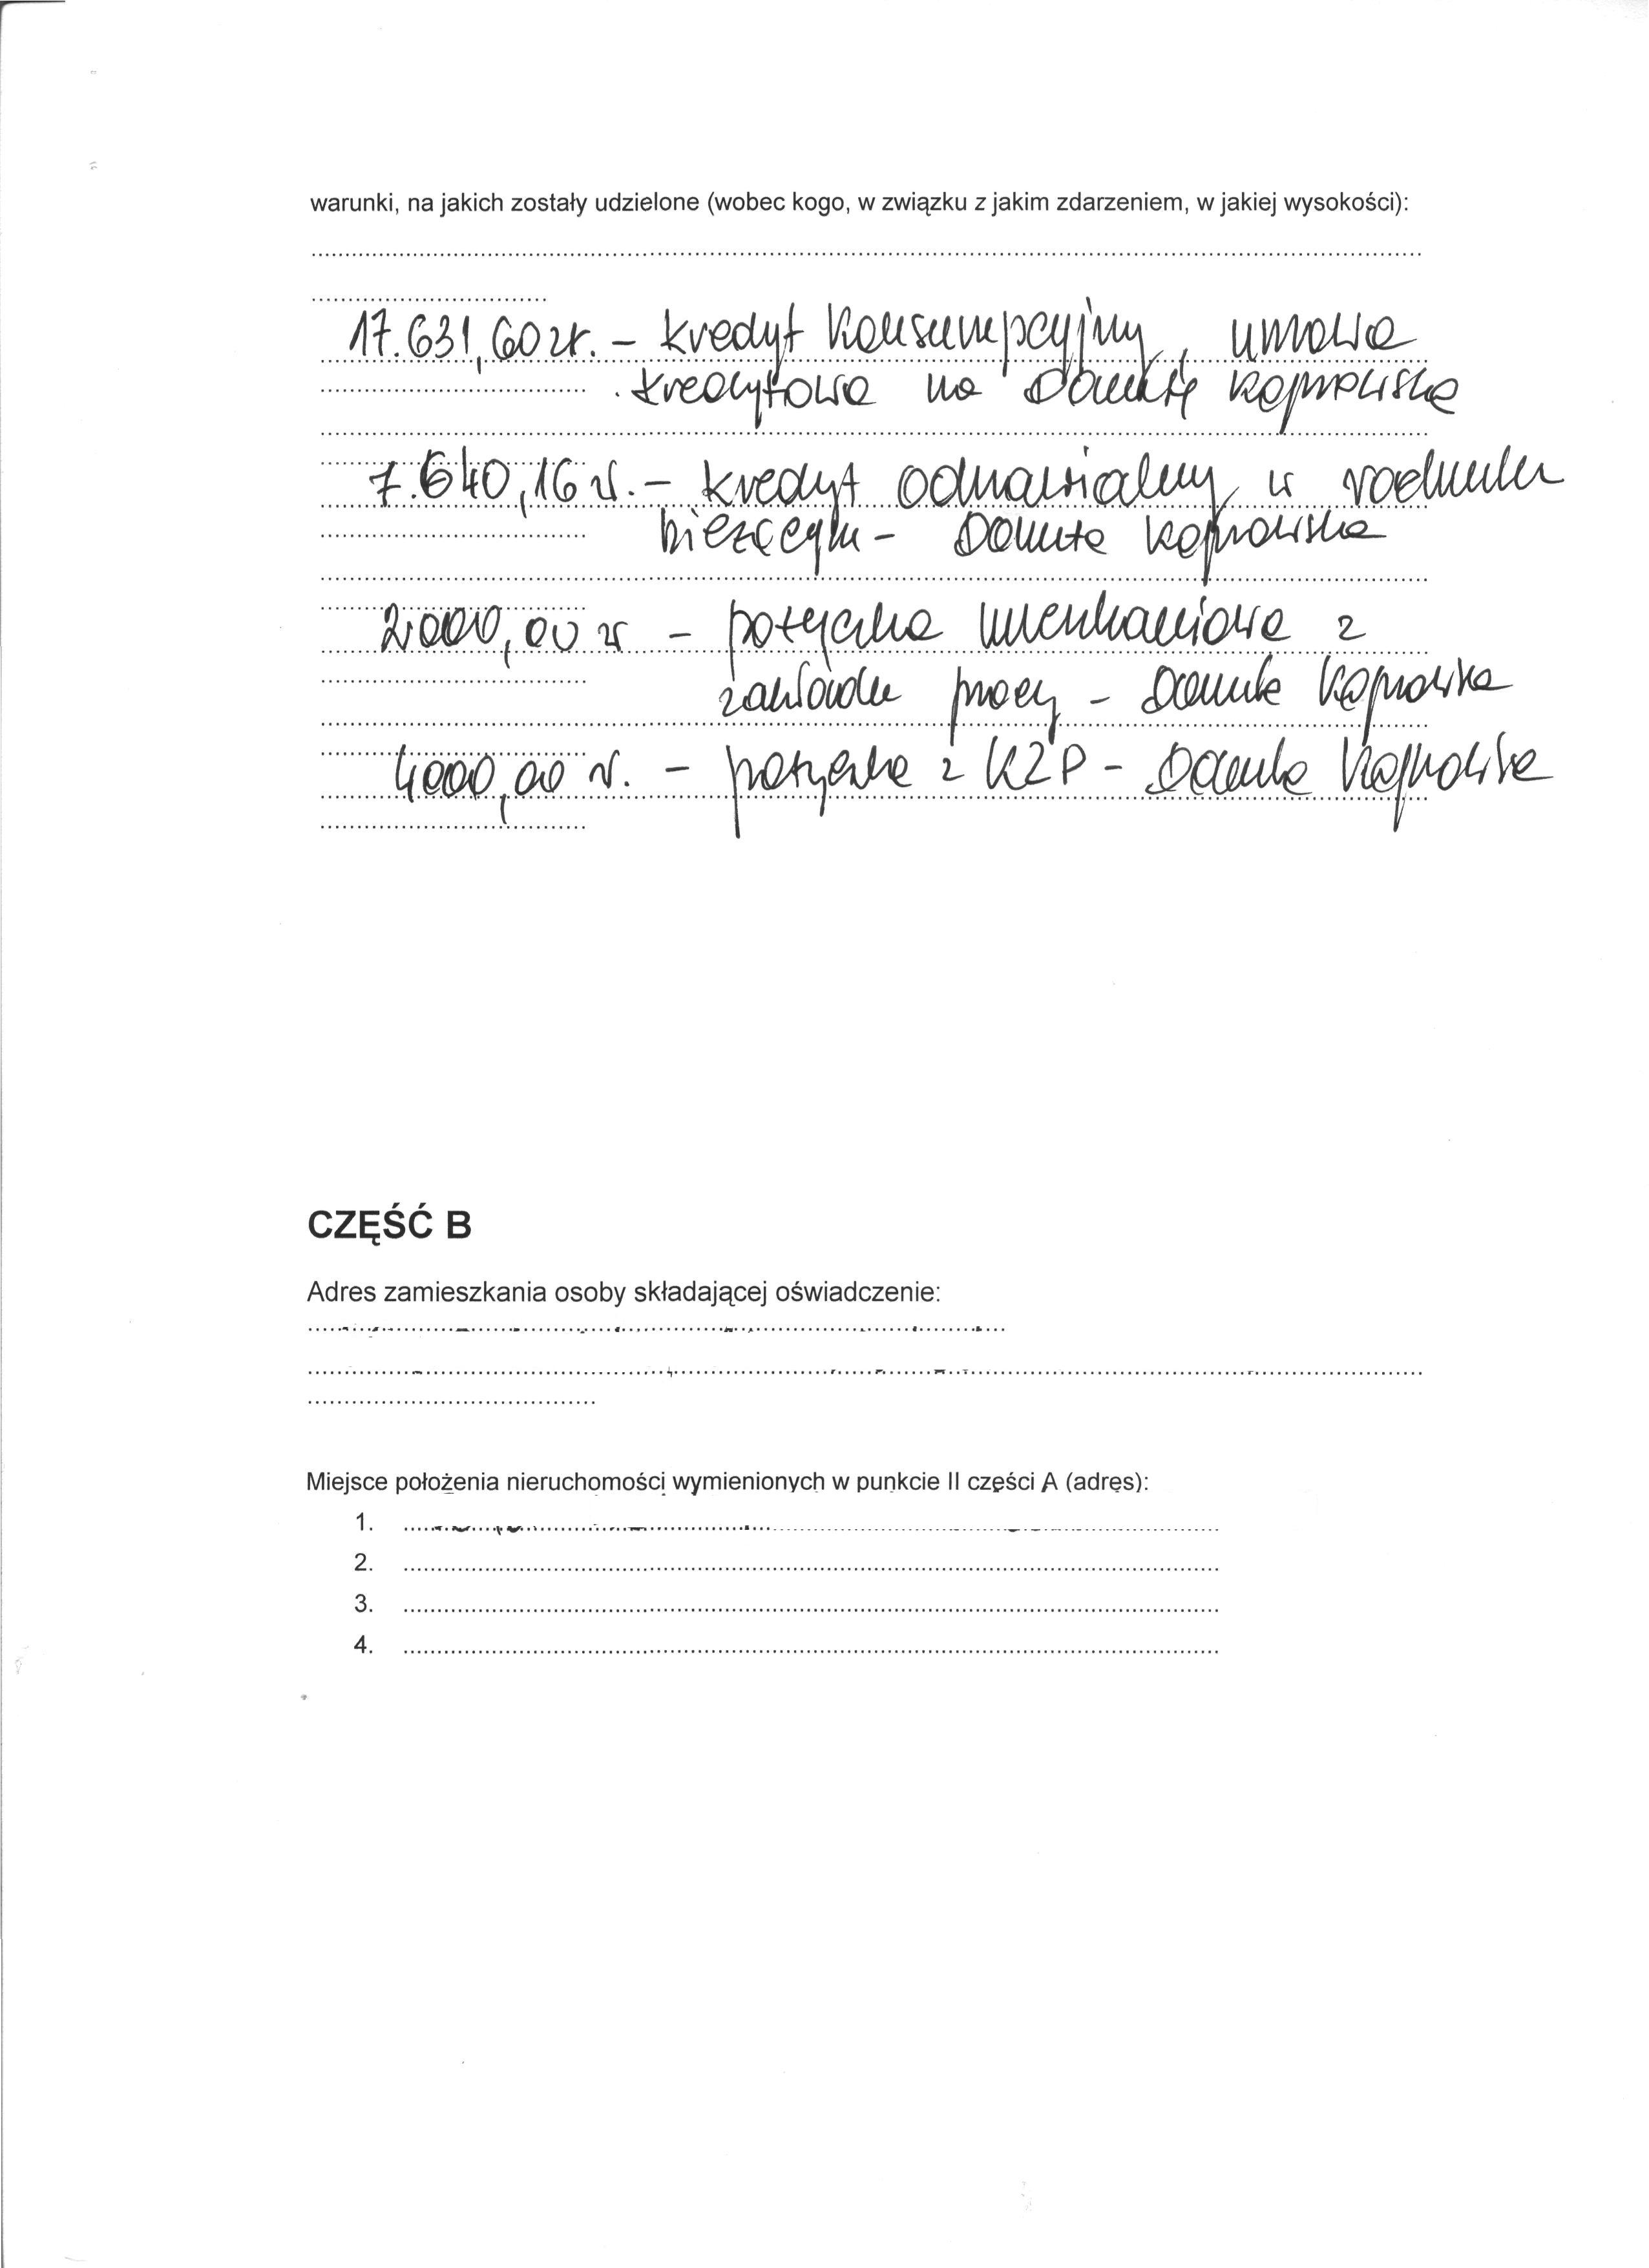 warunki, na jakich zostały udzielone (wobec kogo, w związku z jakim zdarzeniem, w jakiej wysokości):
17.631,60 zł. – kredyt konsumpcyjny, umowa
kredytowa na Danutę
7.640,16 zł. – kredyt odnawialny w rachunku
bieżącym – Danuta
2.000,00 zł – pożyczka mieszkaniowa z
zakładu pracy – Danuta
4000,00 zł. – pożyczka z KZP – Danuta
CZĘŚĆ B
Adres zamieszkania osoby składającej oświadczenie:
Miejsce położenia nieruchomości wymienionych w punkcie II części A (adres):
1.
2.
3.
4.